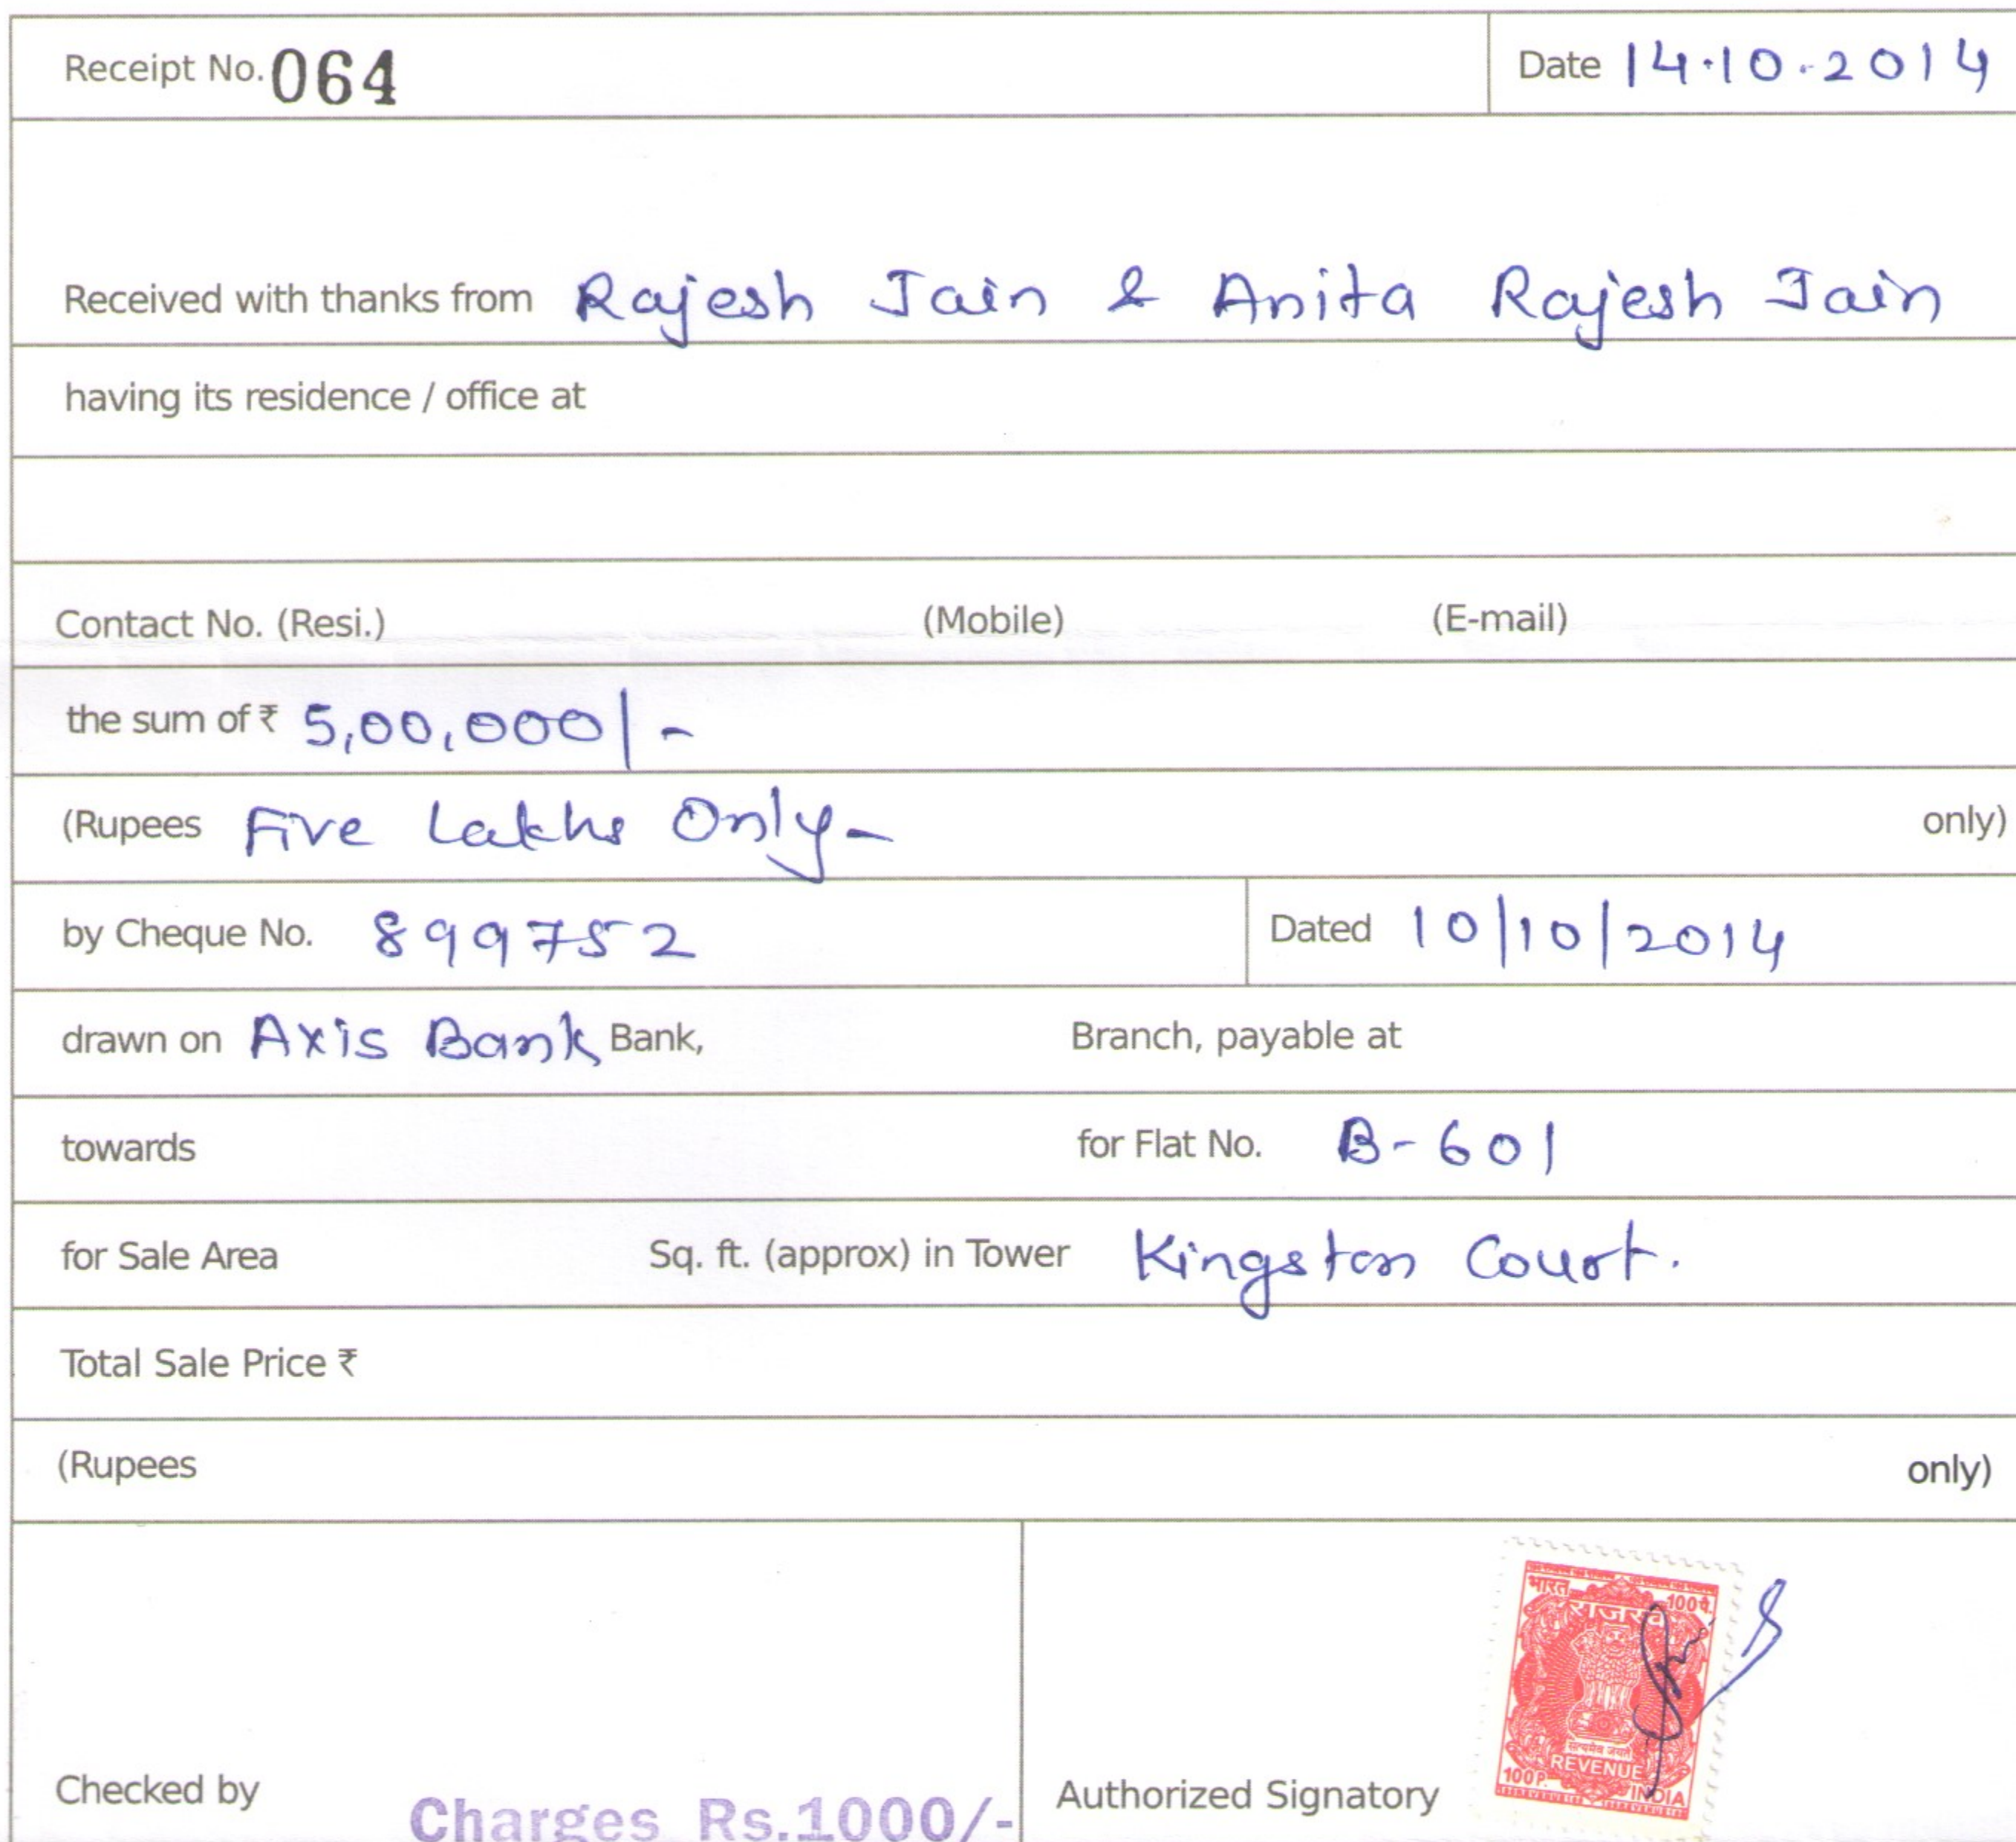 Receipt No. 064 Date 14.10.2014
Received with thanks from Rajesh Jain & Anita Rajesh Jain
having its residence / office at
Contact No. (Resi.) (Mobile) (E-mail)
the sum of ₹ 5,00,000/-
(Rupees Five Lakhs Only- only)
by Cheque No. 899752 Dated 10/10/2014
drawn on Axis Bank Bank, Branch, payable at
towards for Flat No. B-601
for Sale Area Sq. ft. (approx) in Tower Kingston Court.
Total Sale Price ₹
(Rupees only)
भारत 100पै.
राजस्व
सत्यमेव जयते
REVENUE
100P. INDIA
Checked by Authorized Signatory
Charges Rs.1000/-